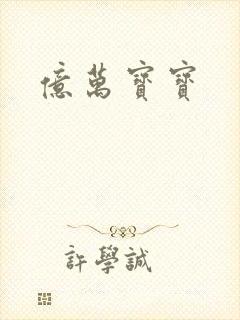 億萬寶寶
許學誠